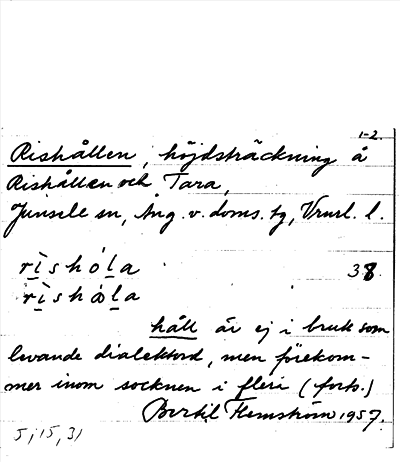 1-2.
Rishållen, höjdsträckning å
Rishållen och Tara,
Junsele sn, Ång. v. doms. tg, Vnrl. l.
rìshóla 38.
rìshåla
håll är ej i bruk som
levande dialektord, men förekom-
mer inom socknen i flera (forts.)
Bertil Flemström 1957.
5, 15, 31